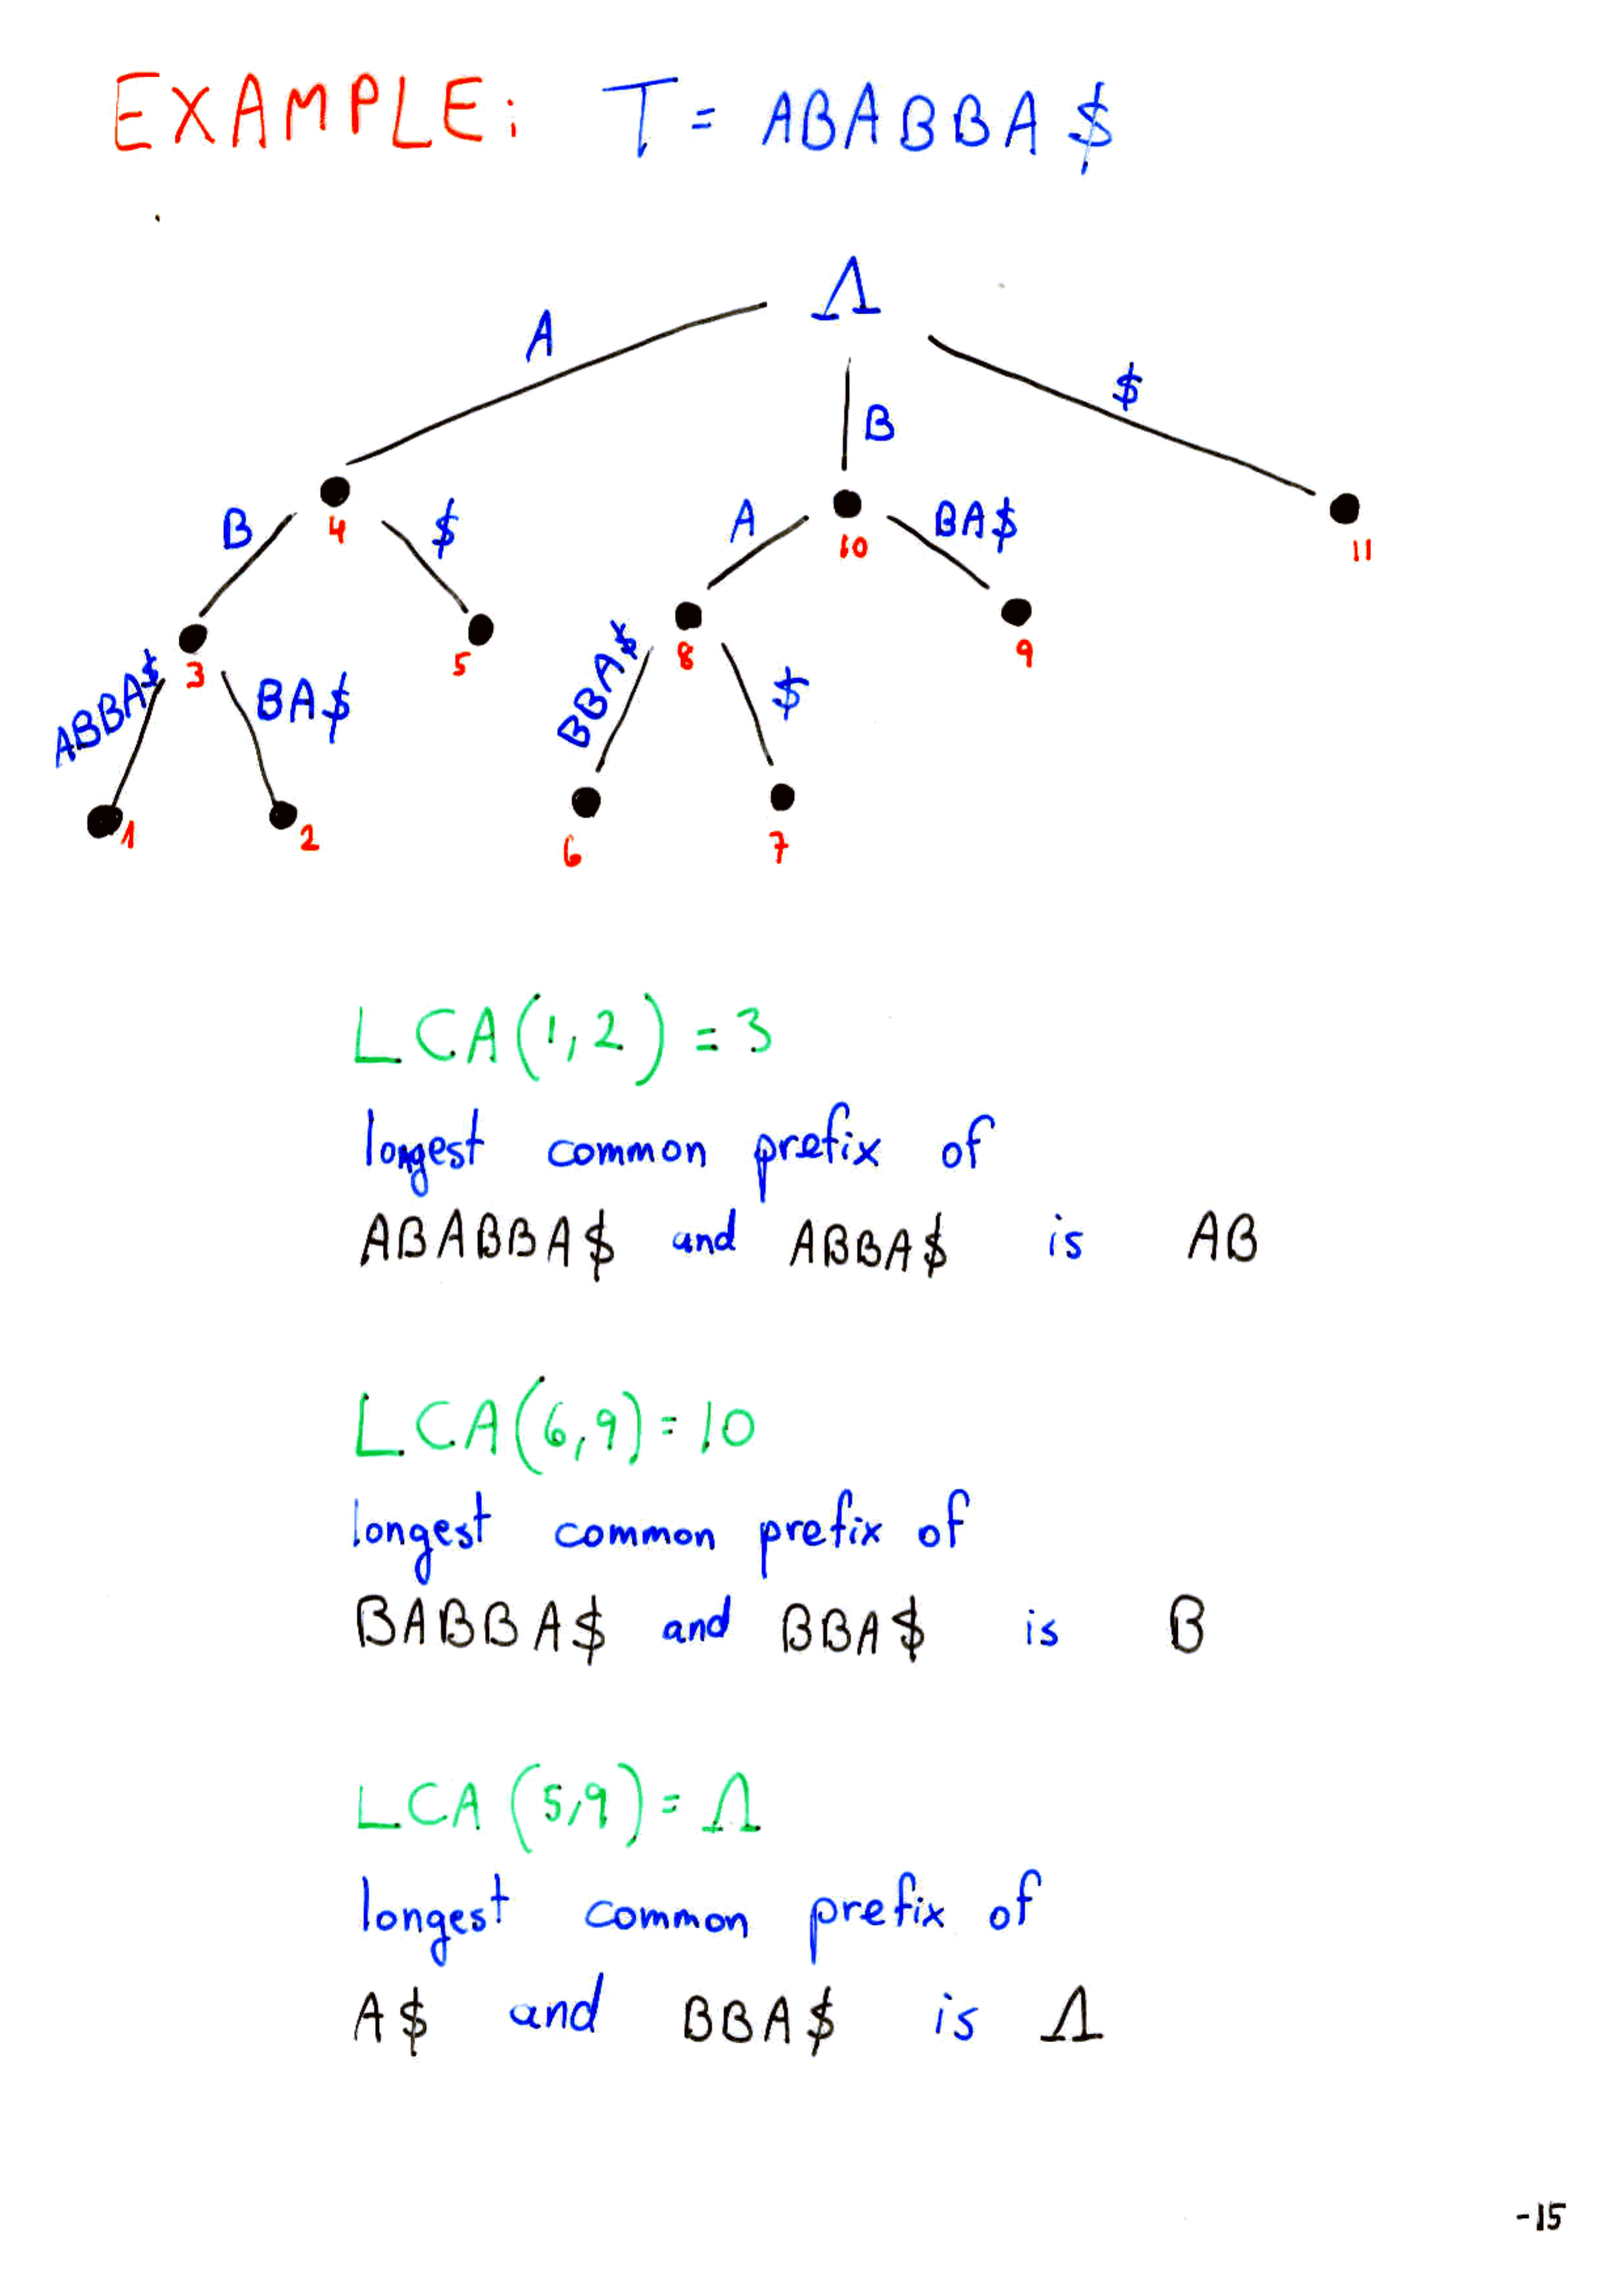 EXAMPLE: T = ABABBA$
Λ
A
$
B
4
10
11
B
$
A
BA$
3
5
8
9
ABBA$
BA$
BBA$
$
1
2
6
7
LCA(1,2) = 3
longest common prefix of
ABABBA$ and ABBA$ is AB
LCA(6,9) = 10
longest common prefix of
BABBA$ and BBA$ is B
LCA(5,9) = Λ
longest common prefix of
A$ and BBA$ is Λ
-15